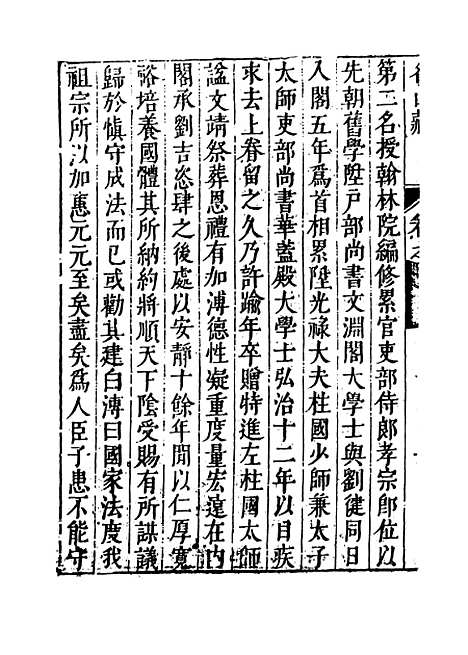 名山藏 卷之
第二名授翰林院編修累官吏部侍郎孝宗即位以
先朝舊學陞戶部尚書文淵閣大學士與劉健同日
入閣五年爲首相累陞光祿大夫柱國少師兼太子
太師吏部尚書華蓋殿大學士弘治十二年以目疾
求去上眷留之久乃許踰年卒贈特進左柱國太師
諡文靖祭葬恩禮有加溥德性凝重度量宏遠在內
閣承劉吉恣肆之後處以安靜十餘年間以仁厚寬
裕培養國體其所納約將順天下陰受賜有所謀議
歸於慎守成法而已或勸其建白溥曰國家法度我
祖宗所以加惠元元至矣盡矣爲人臣子患不能守